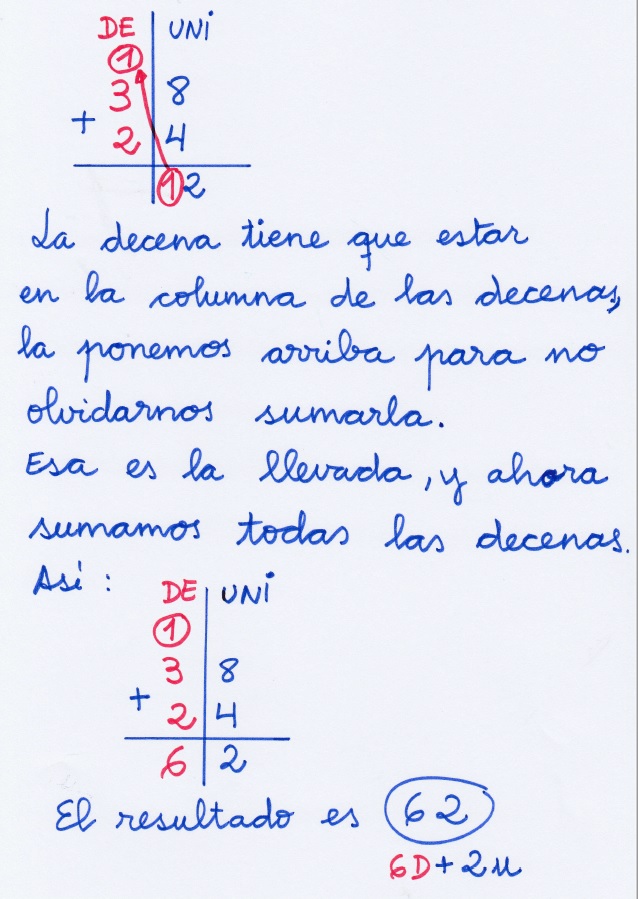 DE UNI
1
3 8
+ 2 4
12
La decena tiene que estar
en la columna de las decenas,
la ponemos arriba para no
olvidarnos sumarla.
Esa es la llevada, y ahora
sumamos todas las decenas.
Así :
DE UNI
1
3 8
+ 2 4
6 2
El resultado es 62
6D+2u